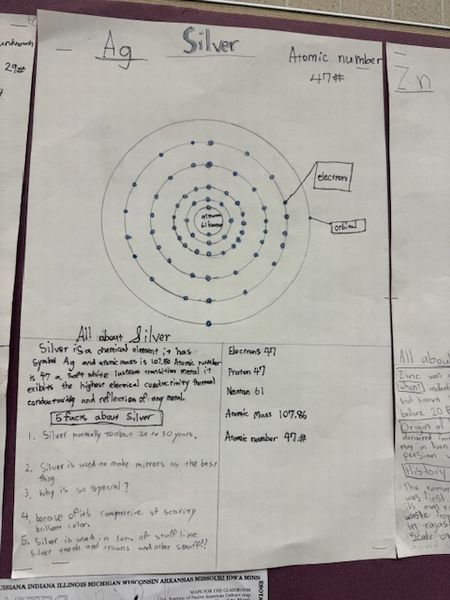 unknown
29#
Ag
Silver
Atomic number
47#
Zn
electron
orbital
All about Silver
Silver is a chemical element it has
Symbol Ag and atomic mass is 107.86 Atomic number
is 47 a soft white lustrous transition metal it
exhibits the highest electrical conductivity thermal
conductivity and reflection of any metal.
5 facts about Silver
1. Silver normally 20 to 30 years.
2. Silver is used to make mirrors as the best
thing.
3. Why is so special?
4. becase of its comparitive of scarity
brilliant color.
5. Silver is used in lots of stuff like
silver teeth and crowns and other stuff!!
Electrons 47
Proton 47
Neutron 61
Atomic Mass 107.86
Atomic number 47.#
All abou
Zinc was
when?
but known
before 20
Origin of
History
the roma
was first
is our
waste
in rajas
scale
UISIANA INDIANA ILLINOIS MICHIGAN WISCONSIN ARKANSAS MISSOURI IOWA MINN
MAPS FOR THE CLASSROOM
of Native American Culture map